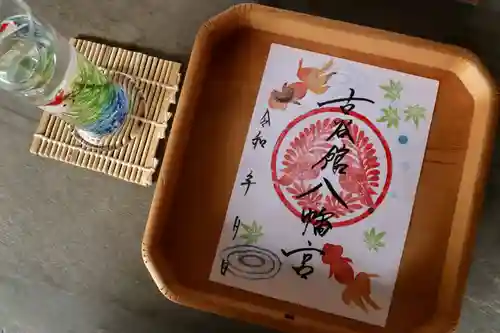 古谷館八幡宮
令和 年 月 日